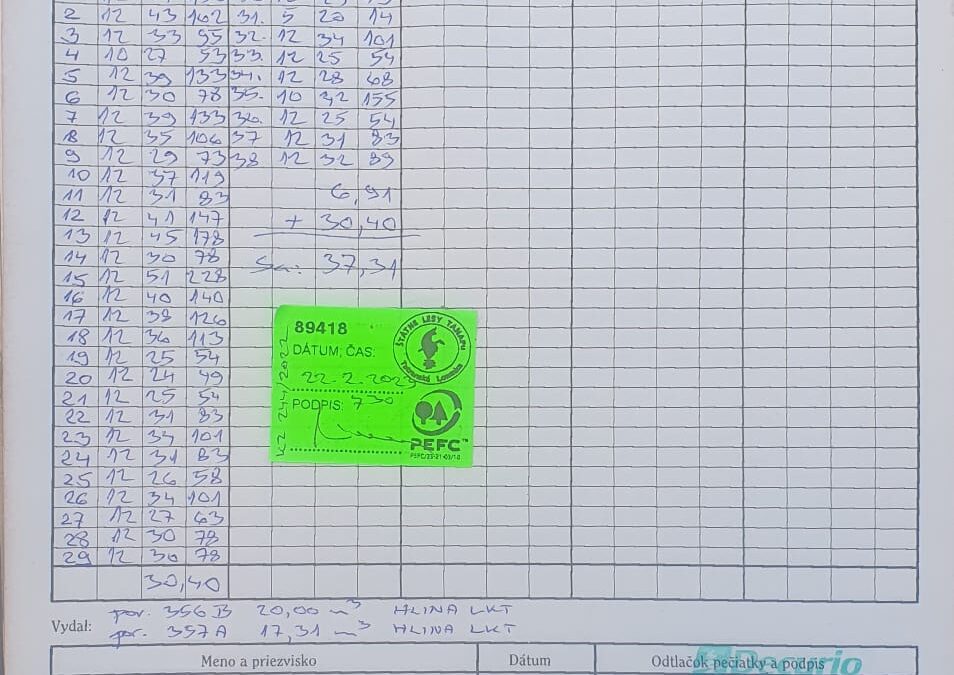 2 12 43 162 31. 5 20 14
3 12 33 95 32. 12 34 101
4 10 27 53 33. 12 25 54
5 12 39 133 34. 12 28 68
6 12 30 78 35. 10 42 155
7 12 39 133 36. 12 25 54
8 12 35 106 37 12 31 83
9 12 29 73 38 12 32 89
10 12 37 119
11 12 31 83 6,91
12 12 41 147 + 30,40
13 12 45 178
14 12 30 78 Sa: 37,31
15 12 51 228
16 12 40 140
17 12 38 126
18 12 36 113
19 12 25 54
20 12 24 49
21 12 25 54
22 12 31 83
23 12 34 101
24 12 31 83
25 12 26 58
26 12 34 101
27 12 27 63
28 12 30 78
29 12 30 78
30,40
89418
ŠTÁTNE LESY TANAPU
Tatranská Lomnica
DÁTUM, ČAS:
22.2.2023
PODPIS: 730
PEFC™
PEFC/23-21-03/10
244/2022
por. 356 B 20,00 m³ HLINA LKT
Vydal: por. 357 A 17,31 m³ HLINA LKT
Meno a priezvisko Dátum Odtlačok pečiatky a podpis
Decario